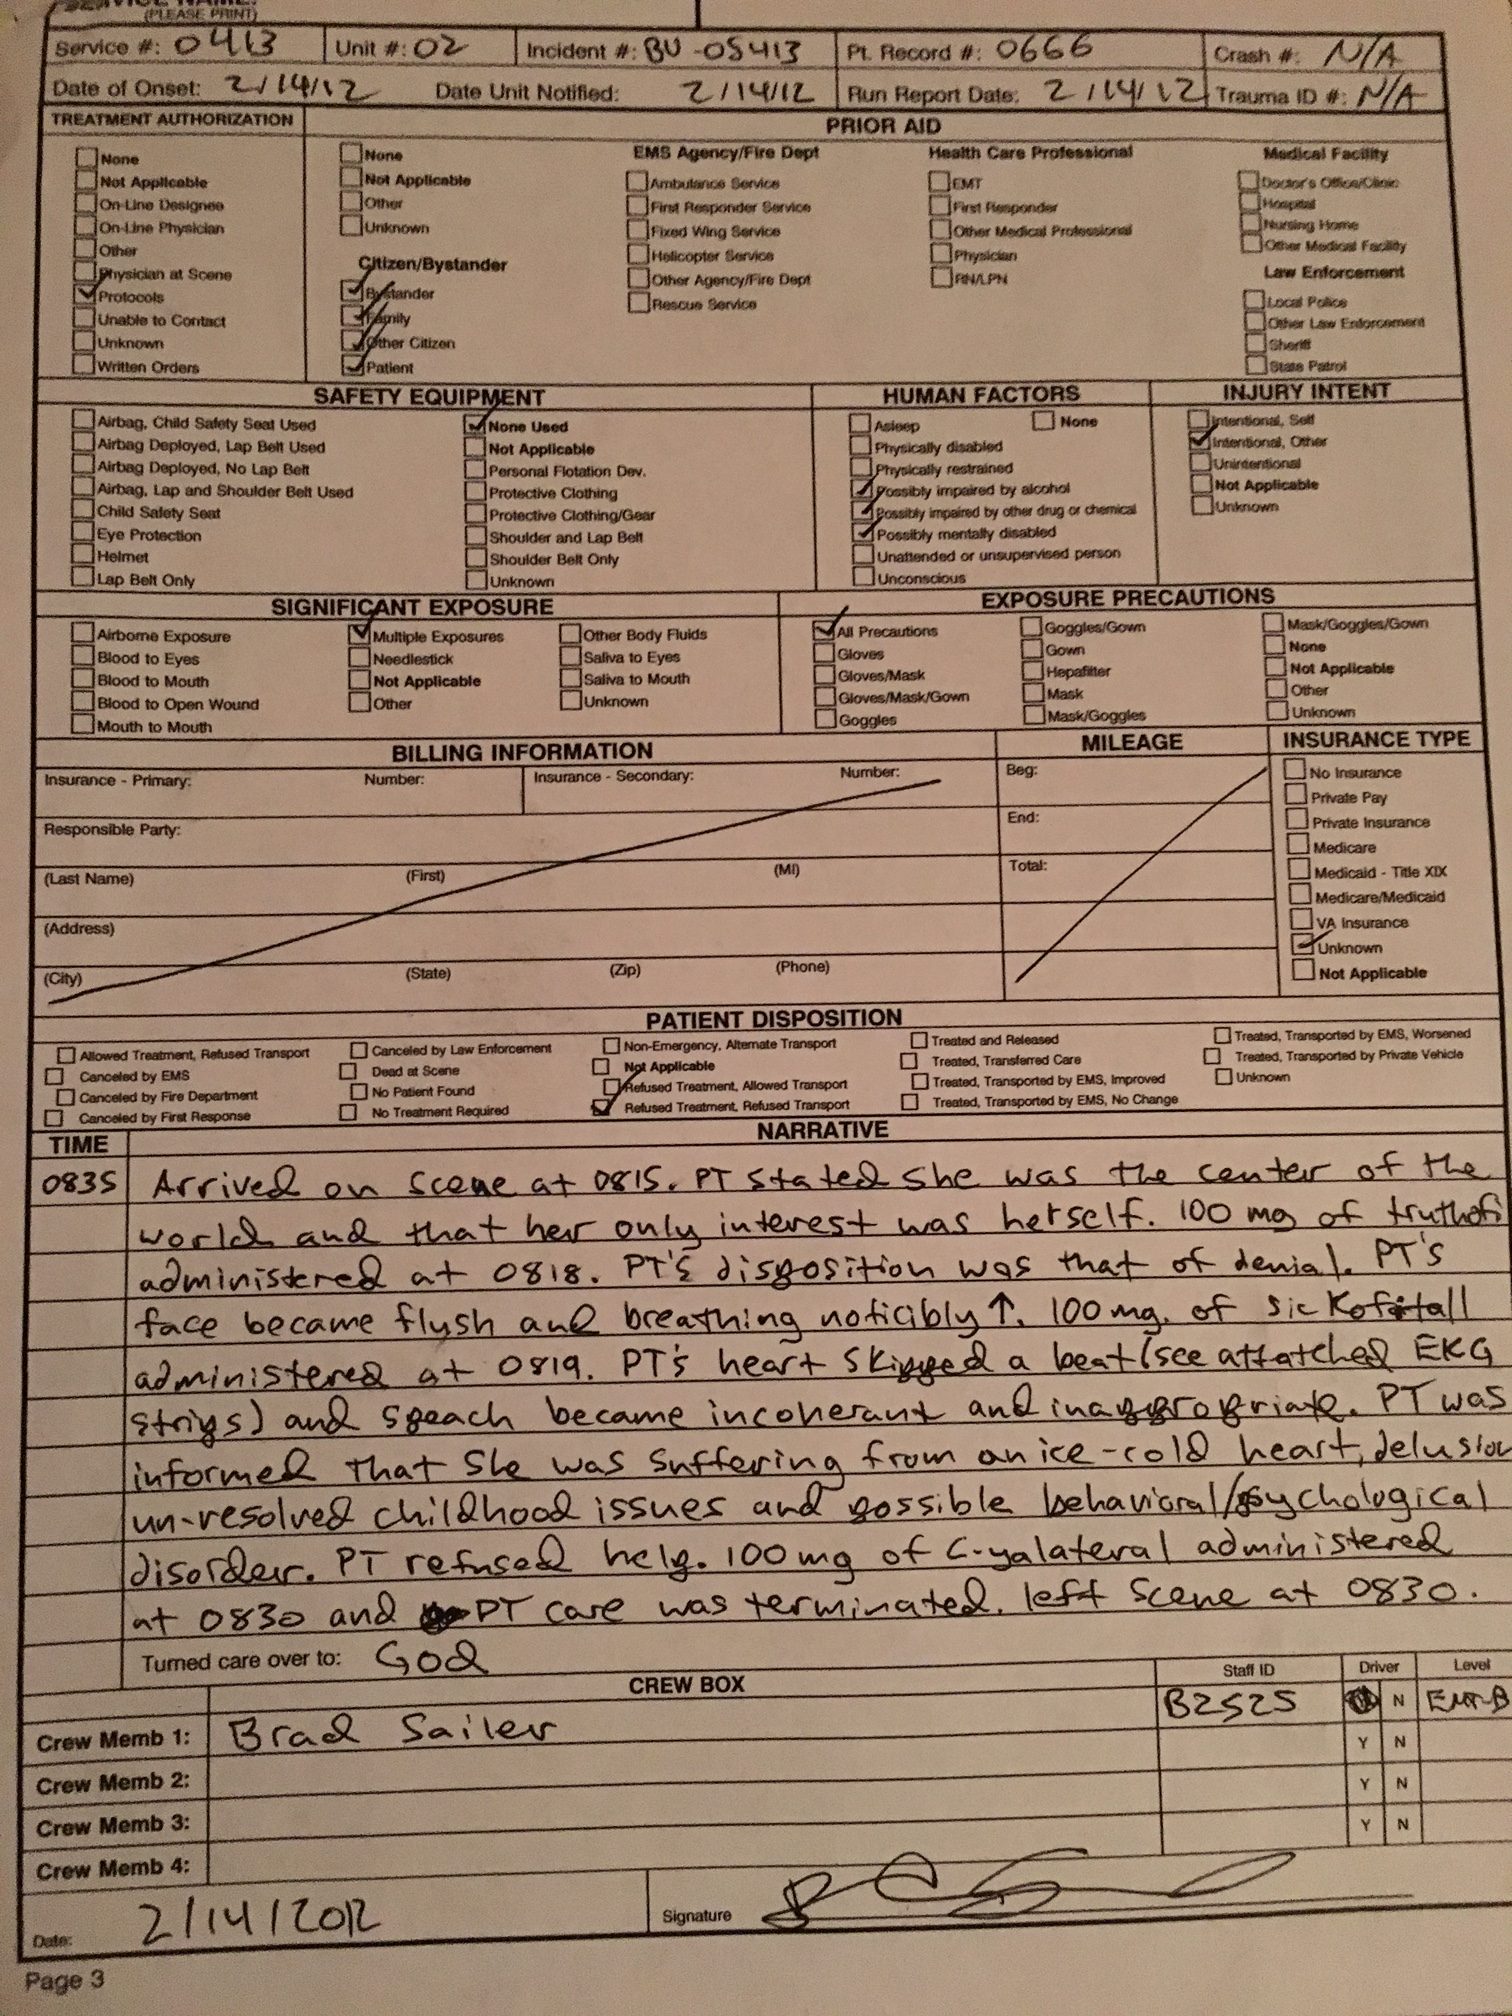 (PLEASE PRINT)
Service #: 0413 Unit #: 02 Incident #: BU-05413 Pt. Record #: 0666 Crash #: N/A
Date of Onset: 2/14/12 Date Unit Notified: 2/14/12 Run Report Date: 2/14/12 Trauma ID #: N/A
TREATMENT AUTHORIZATION
None
Not Applicable
On-Line Designee
On-Line Physician
Other
Physician at Scene
Protocols
Unable to Contact
Unknown
Written Orders
PRIOR AID
None
Not Applicable
Other
Unknown
Citizen/Bystander
Bystander
Family
Other Citizen
Patient
EMS Agency/Fire Dept
Ambulance Service
First Responder Service
Fixed Wing Service
Helicopter Service
Other Agency/Fire Dept
Rescue Service
Health Care Professional
EMT
First Responder
Other Medical Professional
Physician
RN/LPN
Medical Facility
Doctor's Office/Clinic
Hospital
Nursing Home
Other Medical Facility
Law Enforcement
Local Police
Other Law Enforcement
Sheriff
State Patrol
SAFETY EQUIPMENT
Airbag, Child Safety Seat Used
Airbag Deployed, Lap Belt Used
Airbag Deployed, No Lap Belt
Airbag, Lap and Shoulder Belt Used
Child Safety Seat
Eye Protection
Helmet
Lap Belt Only
None Used
Not Applicable
Personal Flotation Dev.
Protective Clothing
Protective Clothing/Gear
Shoulder and Lap Belt
Shoulder Belt Only
Unknown
HUMAN FACTORS
Asleep None
Physically disabled
Physically restrained
Possibly impaired by alcohol
Possibly impaired by other drug or chemical
Possibly mentally disabled
Unattended or unsupervised person
Unconscious
INJURY INTENT
Intentional, Self
Intentional, Other
Unintentional
Not Applicable
Unknown
SIGNIFICANT EXPOSURE
Airborne Exposure
Blood to Eyes
Blood to Mouth
Blood to Open Wound
Mouth to Mouth
Multiple Exposures
Needlestick
Not Applicable
Other
Other Body Fluids
Saliva to Eyes
Saliva to Mouth
Unknown
EXPOSURE PRECAUTIONS
All Precautions
Gloves
Gloves/Mask
Gloves/Mask/Gown
Goggles
Goggles/Gown
Gown
Hepafilter
Mask
Mask/Goggles
Mask/Goggles/Gown
None
Not Applicable
Other
Unknown
BILLING INFORMATION
Insurance - Primary: Number: Insurance - Secondary: Number:
Responsible Party:
(Last Name) (First) (MI)
(Address)
(City) (State) (Zip) (Phone)
MILEAGE
Beg:
End:
Total:
INSURANCE TYPE
No Insurance
Private Pay
Private Insurance
Medicare
Medicaid - Title XIX
Medicare/Medicaid
VA Insurance
Unknown
Not Applicable
PATIENT DISPOSITION
Allowed Treatment, Refused Transport
Canceled by EMS
Canceled by Fire Department
Canceled by First Response
Canceled by Law Enforcement
Dead at Scene
No Patient Found
No Treatment Required
Non-Emergency, Alternate Transport
Not Applicable
Refused Treatment, Allowed Transport
Refused Treatment, Refused Transport
Treated and Released
Treated, Transferred Care
Treated, Transported by EMS, Improved
Treated, Transported by EMS, No Change
Treated, Transported by EMS, Worsened
Treated, Transported by Private Vehicle
Unknown
TIME NARRATIVE
0835 Arrived on scene at 0815. PT stated she was the center of the
world and that her only interest was herself. 100 mg of
administered at 0818. PT's disposition was that of denial. PT'S
face became flush and breathing noticibly ↑. 100 mg. of sickofitall
administered at 0819. PT's heart skipped a beat (see attatched EKG
strips) and speach became incoherant and inappropriate. PT was
informed that she was suffering from an ice-cold heart, delusion
un-resolved childhood issues and possible behavioral/psychological
disorder. PT refused help. 100 mg of C-yalateral administered
at 0830 and PT care was terminated. left scene at 0830.
Turned care over to: God
CREW BOX Staff ID Driver Level
Crew Memb 1: Brad Sailer B2525 N EMT-B
Crew Memb 2: Y N
Crew Memb 3: Y N
Crew Memb 4: Y N
Date: 2/14/2012 Signature
Page 3